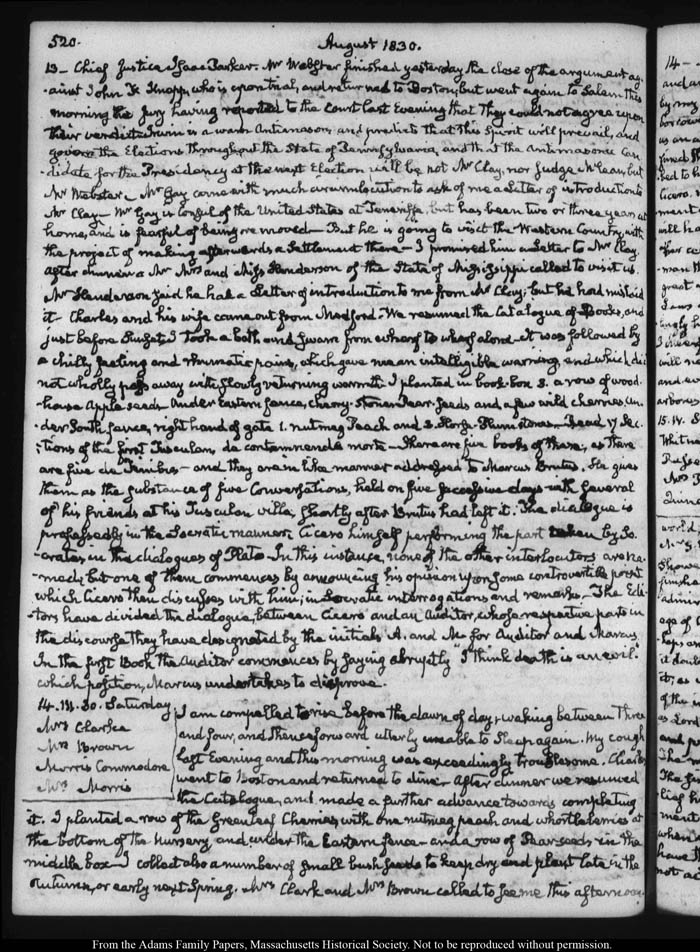 520.
August 1830.
13_ Chief Justice Isaac Parker. Mr Webster finished yesterday the close of the argument ag-
-ainst John F. Knapp, who is upon trial, and returned to Boston, but went again to Salem this
morning the Jury having reported to the Court last Evening that They could not agree upon
their verdict. Irwin is a warm Antimason, and predicts that This Spirit will prevail, and
govern the Elections throughout the State of Pennsylvania, and that the Antimasonic Can-
-didate for the Presidency at the next Election will be not Mr Clay, nor Judge McLean, but
Mr Webster_ Mr Gay came with much circumlocution to ask of me a Letter of introduction to
Mr Clay_ Mr Gay is Consul of the United States at Teneriffe, but has been two or three years at
home, and is fearful of being removed_ But he is going to visit the Western Country, with
the project of making afterwards a Settlement there_ I promised him a Letter to Mr Clay.
After dinner a Mr Mrs and Miss Henderson of the State of Mississippi called to visit us.
Mr Henderson said he had a Letter of introduction to me from Mr Clay; but he had mislaid
it_ Charles and his wife came out from Medford_ We resumed the Catalogue of Books, and
just before Sunset I took a bath and swam from wharf to wharf alone_ It was followed by
a chilly feeling and rheumatic pains, which gave me an intelligible warning, and which did
not wholly pass away with slowly returning warmth. I planted in book-box 3. a row of wood-
-house Apple seeds. Under Eastern fence, cherry-stones Pear-seeds and a few wild cherries, un-
der South fence, right hand of gate 1. nutmeg Peach and 3. Plum stones_ I read 17 Sec-
-tions of the first Tusculan, de contemnenda morte_ There are five books of these, as there
are five de Finibus_ and they are in like manner addressed to Marcus Brutus. He gives
them as the substance of five Conversations, held on five successive days with several
of his friends at his Tusculan villa, shortly after Brutus had left it. The dialogue is
professedly in the Socratic manner, Cicero himself performing the part taken by So-
-crates in the dialogues of Plato_ In this instance, none of the other interlocutors are na-
-med; but one of them commences by announcing his opinion upon some controvertible point
which Cicero then discusses with him; in Socratic interrogations and remarks_ The Edi-
-tors have divided the dialogue, between Cicero and an Auditor, whose respective parts in
the discourse they have designated by the initials A. and M. for Auditor and Marcus.
In the first Book the Auditor commences by saying abruptly "I think death is an evil".
which position, Marcus undertakes to disprove.
14. IV. 30. Saturday
Mrs Clarke
Mrs Brown
Morris Commodore
Mrs Morris
I am compelled to rise before the dawn of day, waking between Three
and four, and thenceforward utterly unable to sleep again. My cough
last Evening and this morning was exceedingly troublesome. Charles
went to Boston and returned to dine. After dinner we resumed
the Catalogue, and made a further advance towards completing
it. I planted a row of the Greenleaf Cherries, with one nutmeg peach and whortleberries at
the bottom of the Nursery and under the Eastern fence_ and a row of Pear seeds in the
middle box_ I collect also a number of small bush seeds to keep dry and plant late in the
Autumn, or early next Spring. Mrs Clark and Mrs Brown called to see me this afternoon
From the Adams Family Papers, Massachusetts Historical Society. Not to be reproduced without permission.